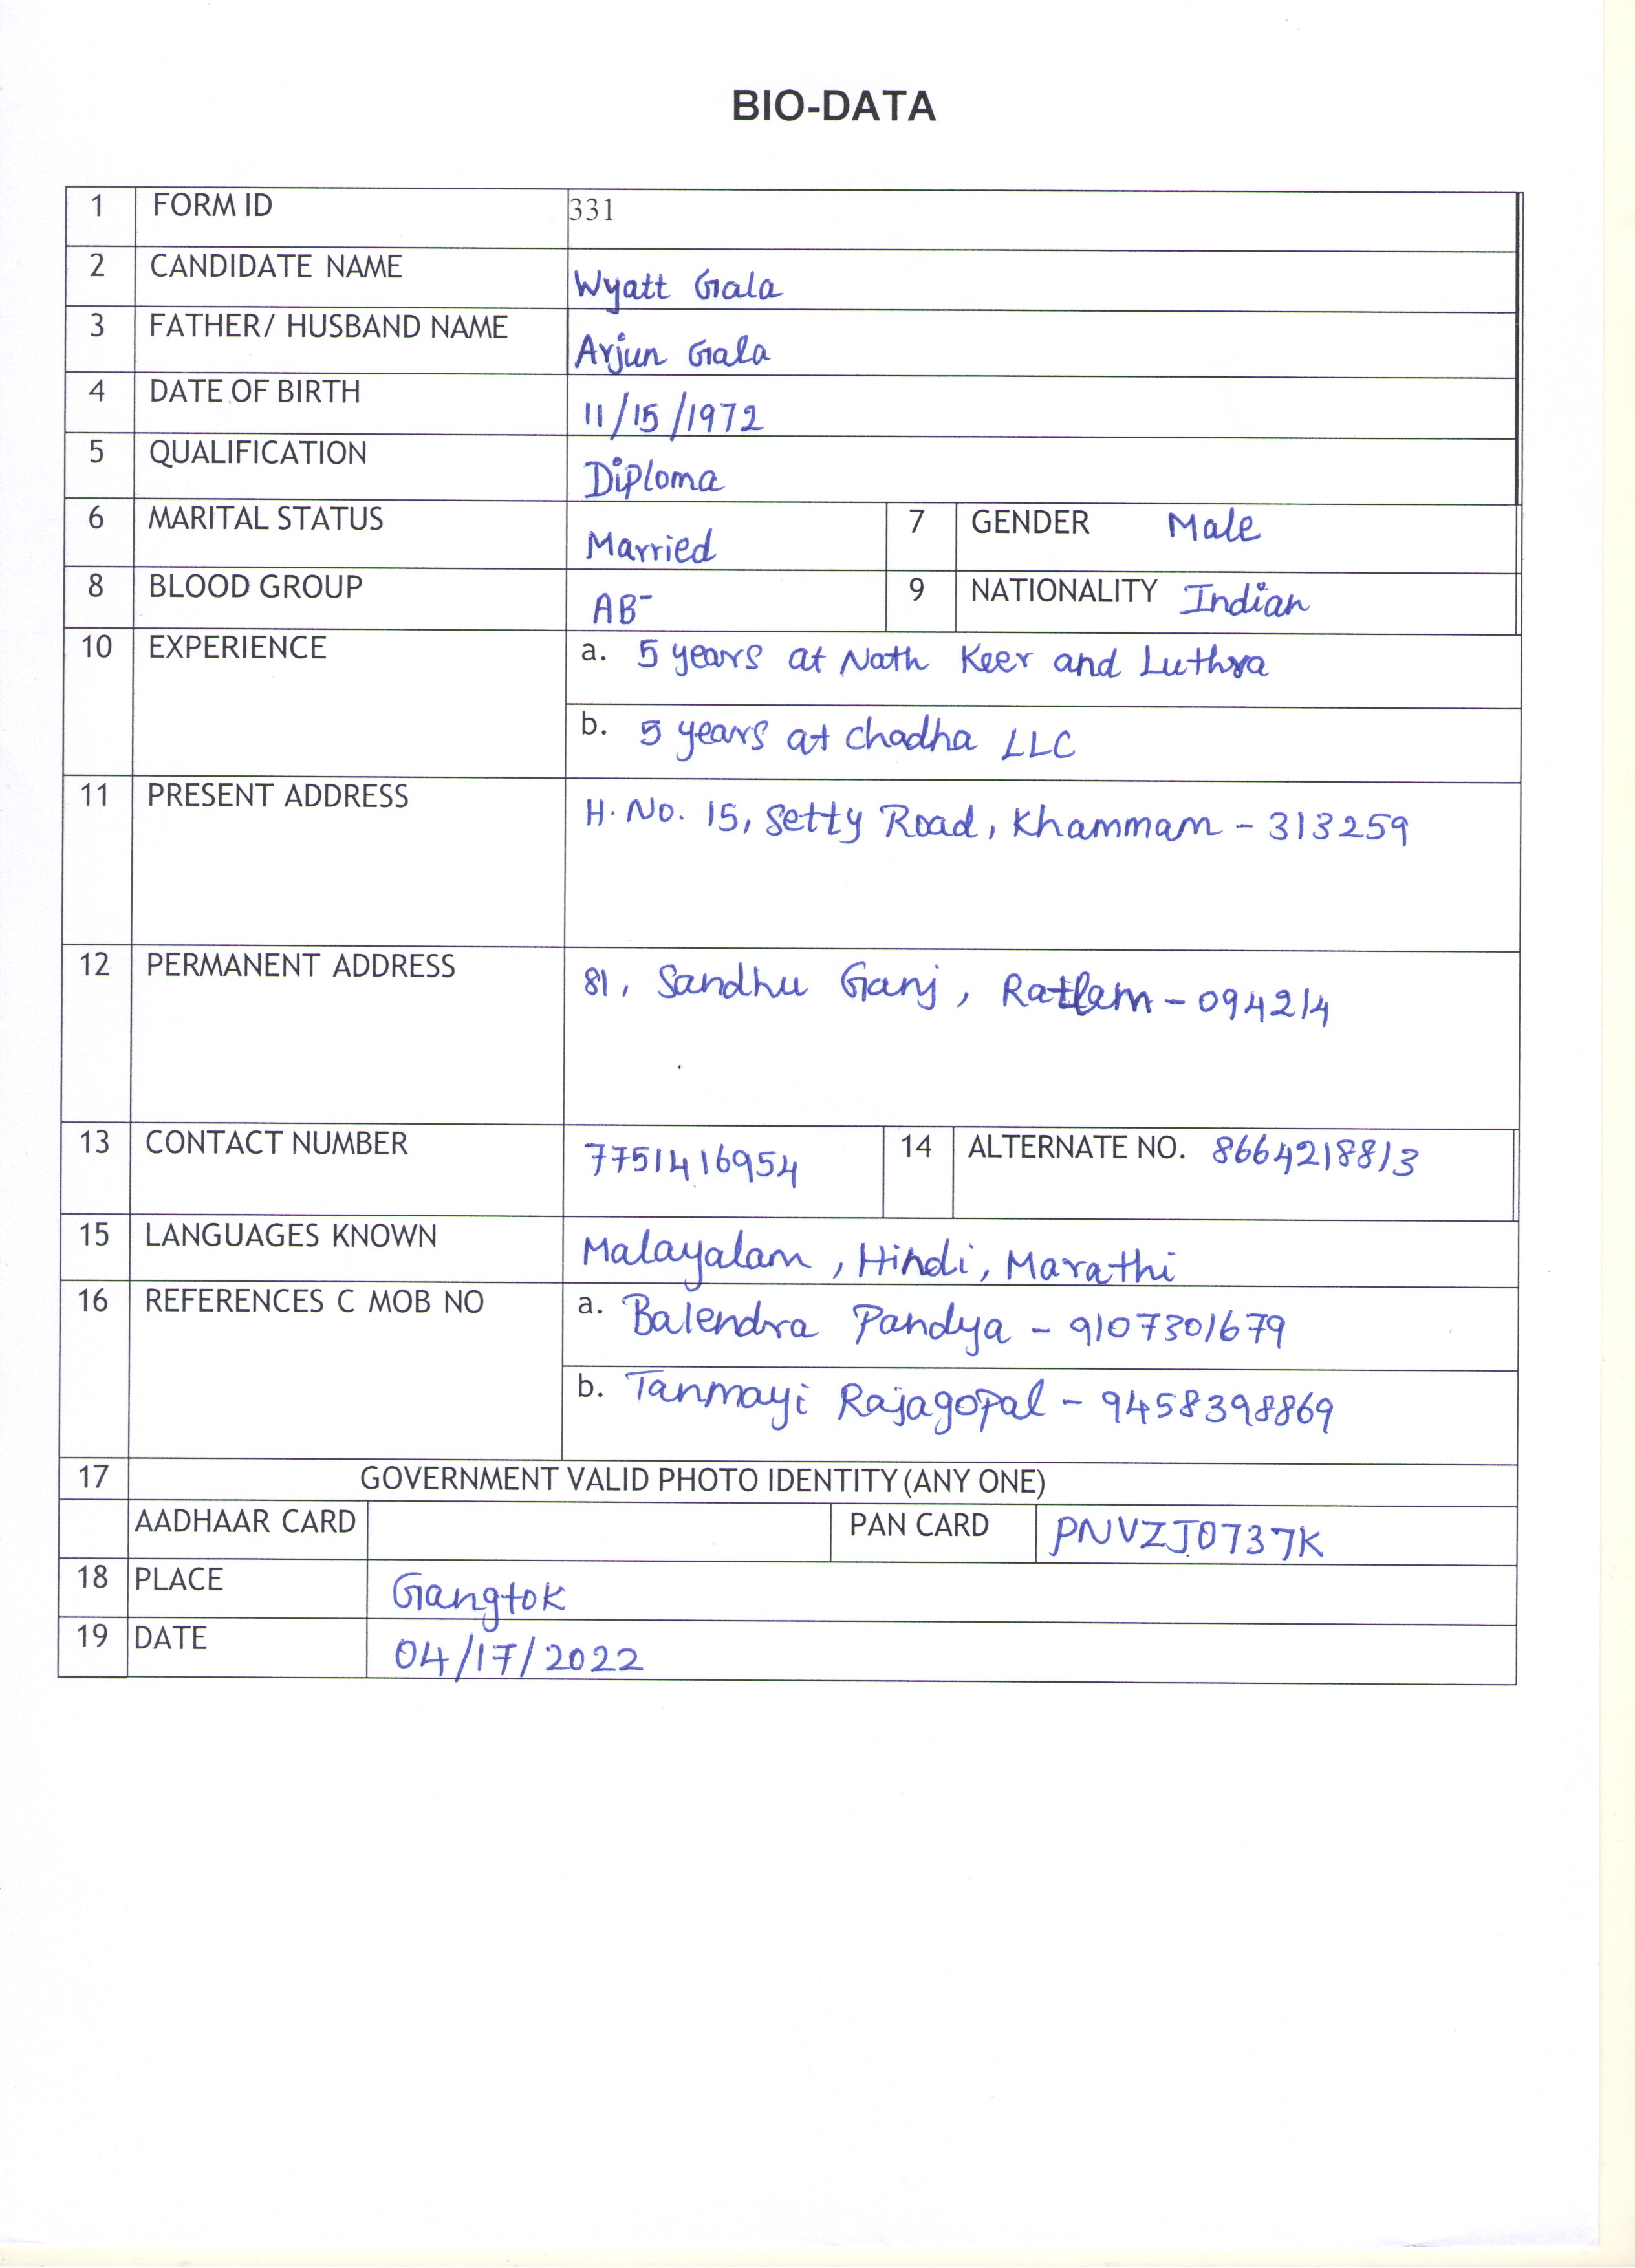 BIO-DATA
1 FORM ID 331
2 CANDIDATE NAME Wyatt Gala
3 FATHER/ HUSBAND NAME Arjun Gala
4 DATE OF BIRTH 11/15/1972
5 QUALIFICATION Diploma
6 MARITAL STATUS Married 7 GENDER Male
8 BLOOD GROUP AB- 9 NATIONALITY Indian
10 EXPERIENCE a. 5 years at Nath Keer and Luthra
b. 5 years at Chadha LLC
11 PRESENT ADDRESS H. No. 15, Setty Road, Khammam - 313259
12 PERMANENT ADDRESS 81, Sandhu Ganj, Ratlam - 094214
13 CONTACT NUMBER 7751416954 14 ALTERNATE NO. 8664218813
15 LANGUAGES KNOWN Malayalam, Hindi, Marathi
16 REFERENCES C MOB NO a. Balendra Pandya - 9107301679
b. Tanmayi Rajagopal - 9458398869
17 GOVERNMENT VALID PHOTO IDENTITY (ANY ONE)
AADHAAR CARD PAN CARD PNVZJ0737K
18 PLACE Gangtok
19 DATE 04/17/2022